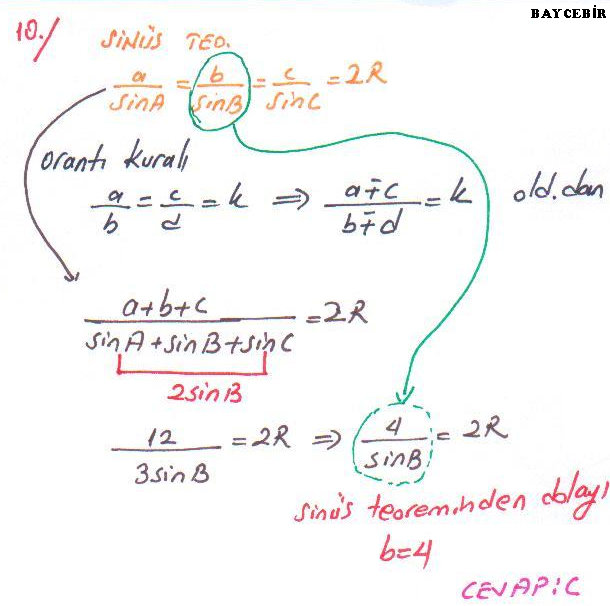 BAYCEBİR
10./ SİNÜS TEO.
a/sinA = b/sinB = c/sinC = 2R
orantı kuralı
a/b = c/d = k ⇒ a∓c/b∓d = k old.dan
a+b+c/sinA+sinB+sinC = 2R
2sinB
12/3sinB = 2R ⇒ 4/sinB = 2R
sinüs teoreminden dolayı
b=4
CEVAP:C